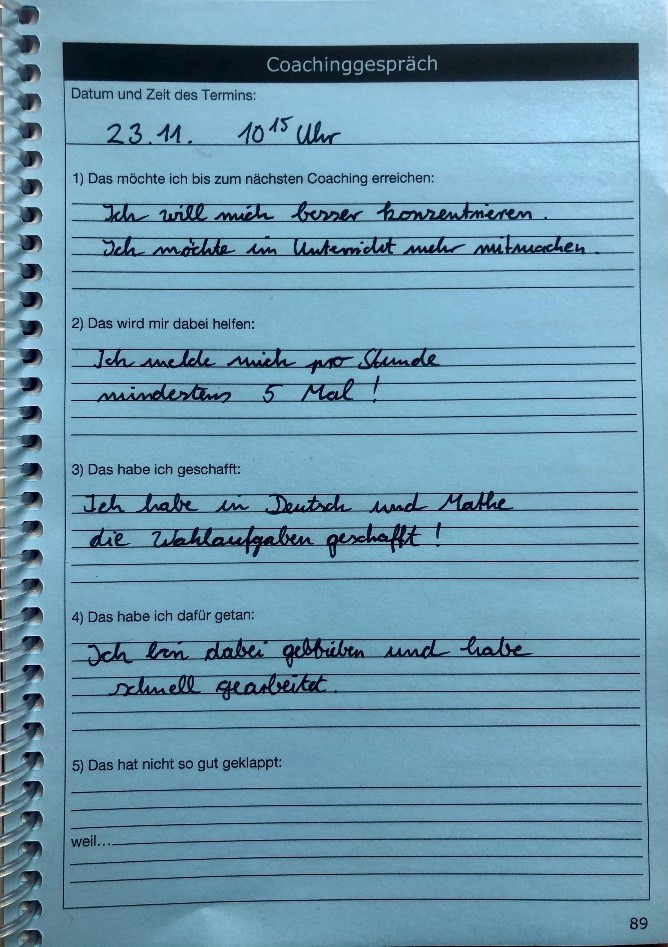 Coachinggespräch
Datum und Zeit des Termins:
23.11. 10¹⁵ Uhr
1) Das möchte ich bis zum nächsten Coaching erreichen:
Ich will mich besser konzentrieren.
Ich möchte im Unterricht mehr mitmachen.
2) Das wird mir dabei helfen:
Ich melde mich pro Stunde
mindestens 5 Mal!
3) Das habe ich geschafft:
Ich habe in Deutsch und Mathe
die Wahlaufgaben geschafft!
4) Das habe ich dafür getan:
Ich bin dabei geblieben und habe
schnell gearbeitet.
5) Das hat nicht so gut geklappt:
weil...
89